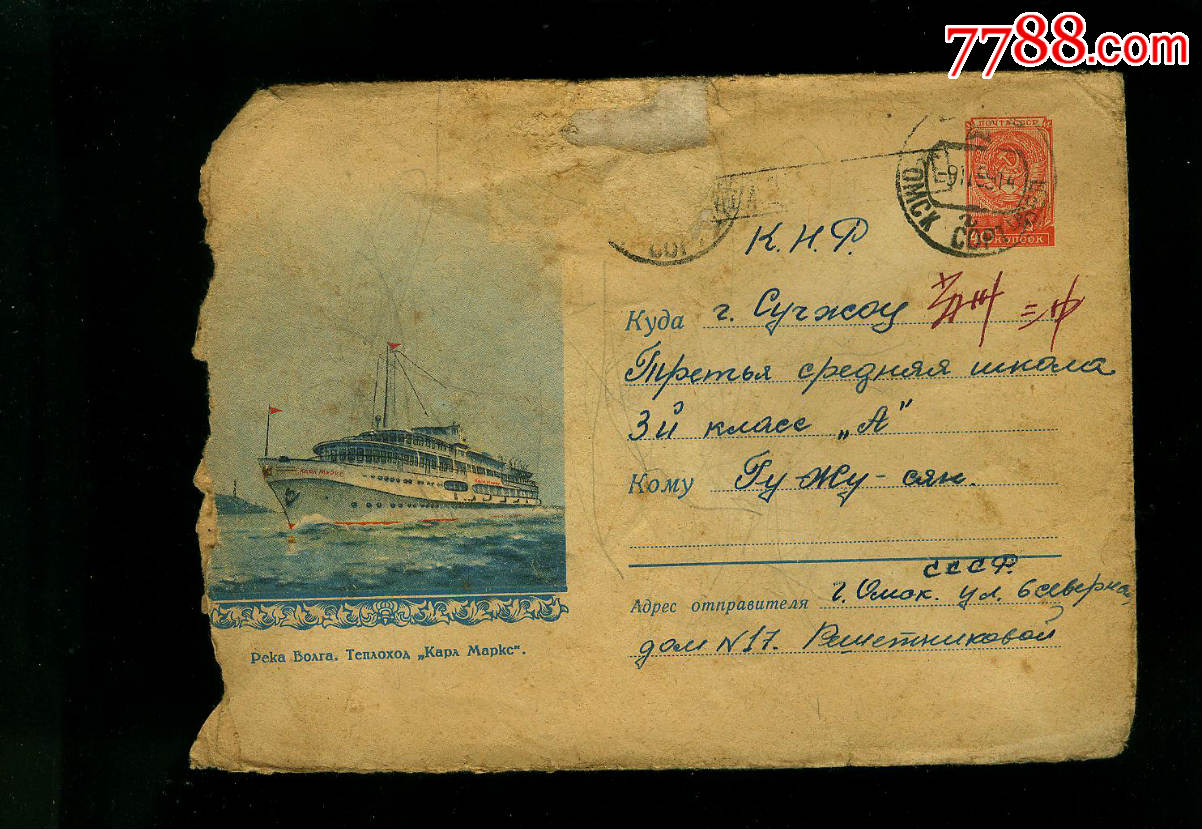 7788.com
ПОЧТА СССР
40 КОПЕЕК
ОМСК СОРТ
СОР
К.Н.Р.
Куда г. Сучжоу
Третья средняя школа
3й класс „А"
Кому Гу-Жу-сян.
СССР.
Адрес отправителя г. Омск. ул. 6 северная
дом N17. Решетниковой
КАРЛ МАРКС
Река Волга. Теплоход „Карл Маркс".